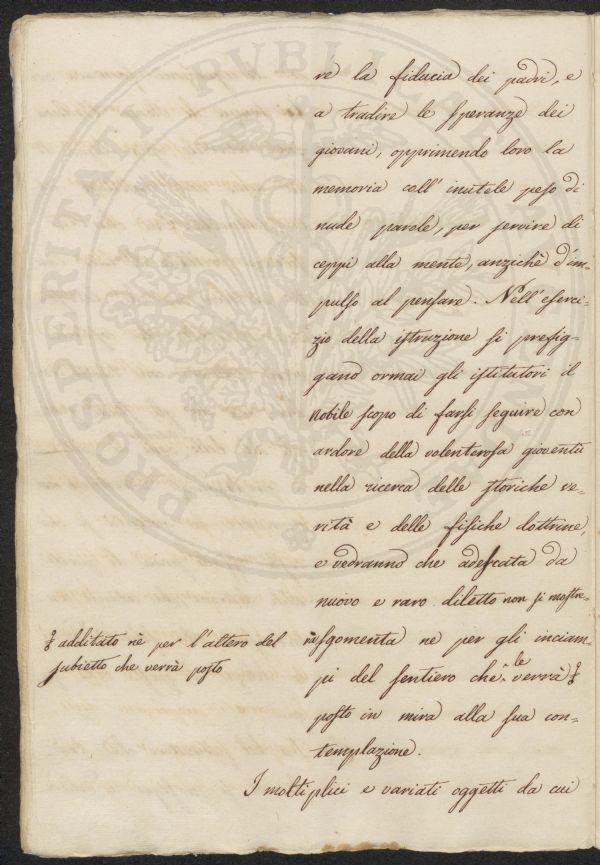 PROSPERITATI PVBLICAE
re la fiducia dei padri, e
a tradire le speranze dei
giovani, opprimendo loro la
memoria coll' inutele peso di
nude parole, per servire di
ceppi alla mente, anzichè d'im=
pulso al pensare. Nell' eserci=
zio della istruzione si prefig=
gano ormai gli istitutori il
nobile scopo di farsi seguire con
ardore della volenterosa gioventù
nella ricerca delle storiche ve=
rità e delle fisiche dottrine,
e vedranno che adescata da
nuovo e raro diletto non si mostre=
rà sgomenta ne per gli inciam=
pi del sentiero che le verrà
additato nè per l'altero del
subietto che verrà posto
posto in mira alla sua con=
templazione.
I moltiplici e variati oggetti da cui